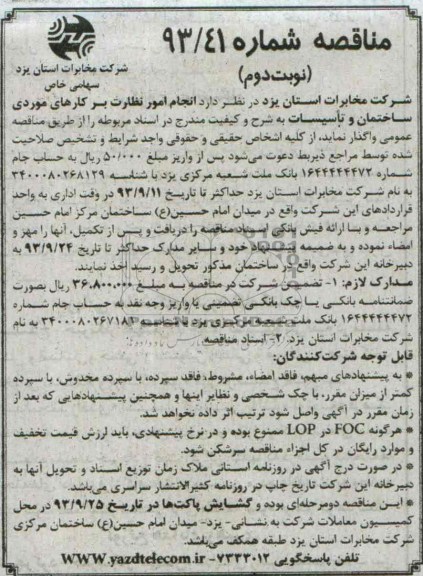 مناقصه شماره ۹۳/۴۱
(نوبت دوم)
شرکت مخابرات استان یزد
سهامی خاص
شرکت مخابرات استان یزد در نظر دارد انجام امور نظارت بر کارهای موردی
ساختمان و تأسیسات به شرح و کیفیت مندرج در اسناد مربوطه را از طریق مناقصه
عمومی واگذار نماید، از کلیه اشخاص حقیقی و حقوقی واجد شرایط و تشخیص صلاحیت
شده توسط مراجع ذیربط دعوت می‌شود پس از واریز مبلغ ۵۰/۰۰۰ ریال به حساب جام
شماره ۱۶۴۴۴۴۴۴۷۲ بانک ملت شعبه مرکزی یزد با شناسه ۳۴۰۰۰۸۰۲۶۸۱۲۹
به نام شرکت مخابرات استان یزد حداکثر تا تاریخ ۹۳/۹/۱۱ در وقت اداری به واحد
قراردادهای این شرکت واقع در میدان امام حسین(ع) ساختمان مرکز امام حسین
مراجعه و با ارائه فیش بانکی اسناد مناقصه را دریافت و پس از تکمیل، آنها را مهر و
امضاء نموده و به ضمیمه پیشنهاد خود و سایر مدارک حداکثر تا تاریخ ۹۳/۹/۲۴ به
دبیرخانه این شرکت واقع در ساختمان مذکور تحویل و رسید اخذ نمایند.
مدارک لازم: ۱- تضمین شرکت در مناقصه به مبلغ ۳۶،۸۰۰،۰۰۰ ریال بصورت
ضمانتنامه بانکی یا چک بانکی تضمینی یا واریز وجه نقد به حساب جام شماره
۱۶۴۴۴۴۴۴۷۲ بانک ملت شعبه مرکزی یزد با شناسه ۳۴۰۰۰۸۰۲۶۷۱۸۳ به نام
شرکت مخابرات استان یزد. ۲- اسناد مناقصه
قابل توجه شرکت‌کنندگان:
* به پیشنهادهای مبهم، فاقد امضاء، مشروط، فاقد سپرده، با سپرده مخدوش، با سپرده
کمتر از میزان مقرر، با چک شخصی و نظایر اینها و همچنین پیشنهادهایی که بعد از
زمان مقرر در آگهی واصل شود ترتیب اثر داده نخواهد شد.
* هرگونه FOC در LOP ممنوع بوده و در نرخ پیشنهادی، باید ارزش قیمت تخفیف
و موارد رایگان در کل اجزاء مناقصه سرشکن شود.
* در صورت درج آگهی در روزنامه استانی ملاک زمان توزیع اسناد و تحویل آنها به
دبیرخانه این شرکت تاریخ چاپ در روزنامه کثیرالانتشار سراسری می‌باشد.
* این مناقصه دومرحله‌ای بوده و گشایش پاکت‌ها در تاریخ ۹۳/۹/۲۵ در محل
کمیسیون معاملات شرکت به نشانی- یزد- میدان امام حسین(ع) ساختمان مرکزی
شرکت مخابرات استان یزد طبقه همکف می‌باشد.
تلفن پاسخگویی ۷۲۳۳۰۱۲- WWW.yazdtelecom.ir